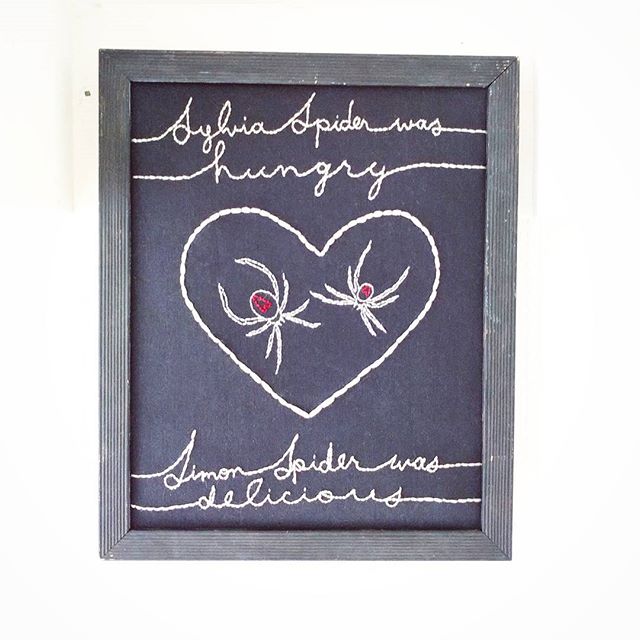 Sylvia Spider was
hungry
Simon Spider was
delicious